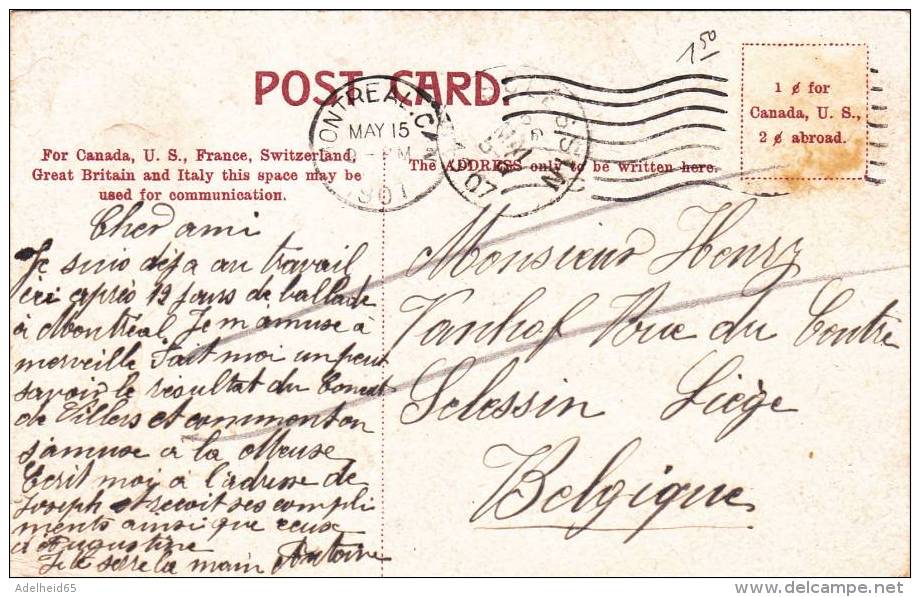 1 50
POST CARD.
MONTREAL. CAN.
MAY 15
PM
1907
07
1 ¢ for
Canada, U. S.,
2 ¢ abroad.
For Canada, U. S., France, Switzerland,
Great Britain and Italy this space may be
used for communication.
The ADDRESS only to be written here.
Cher ami
Je suis deja au travail
ici après 12 jours de ballade
à Montréal Je m amuse à
merveille Fait moi un peut
savoir le resultat du
de Villers et comment on
s'amuse à la Meuse
Ecrit moi à l'adresse de
Joseph et recoit ses compli
ments ainsi que ceux
d'Augustine
Je te serre la main Antoine
Monsieur Henry
Vanhof Rue du Centre
Selessin Liège
Belgique
Adelheid65
delcampe.net